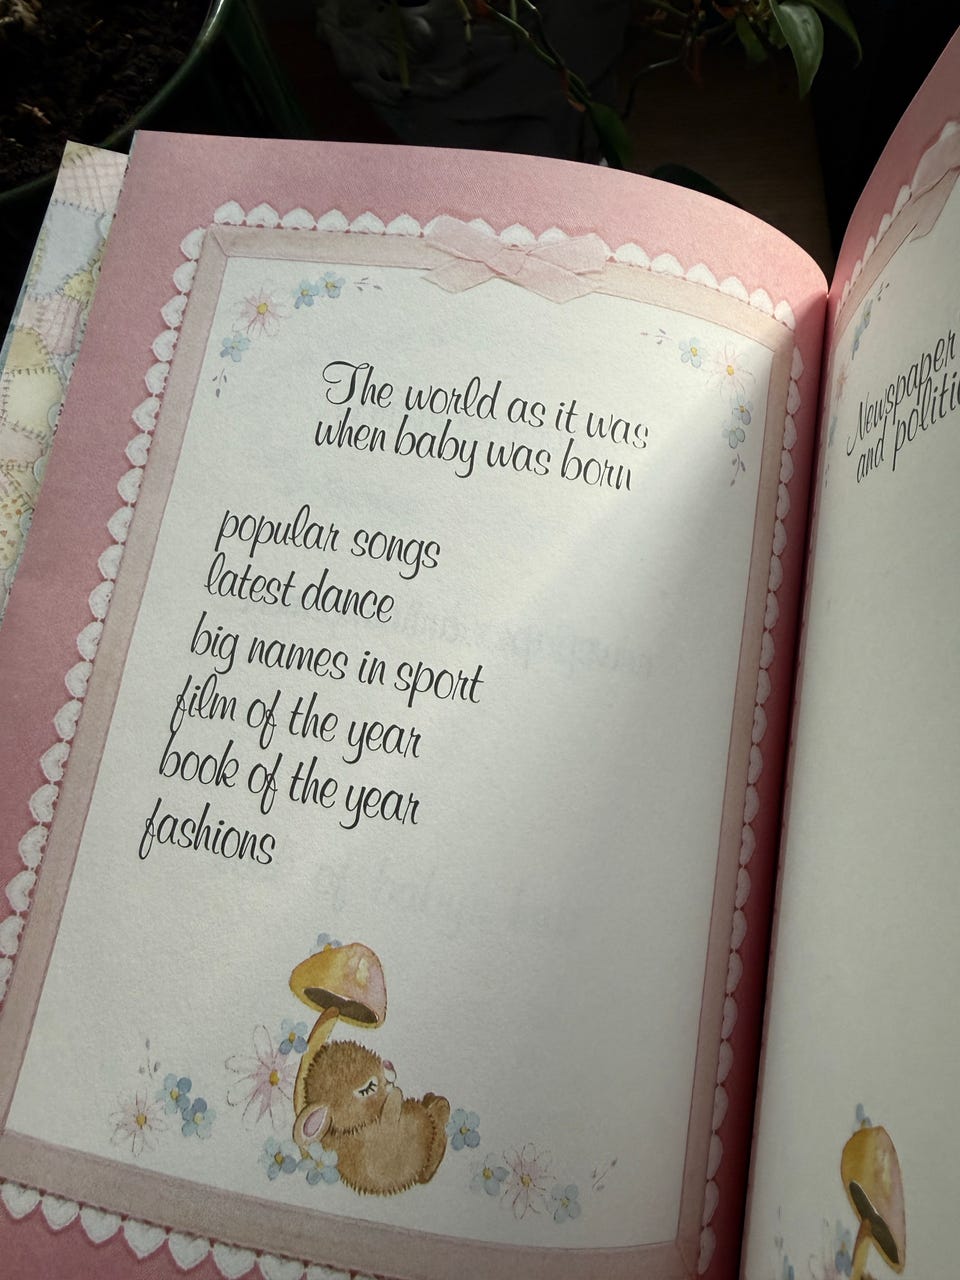 The world as it was
when baby was born
popular songs
latest dance
big names in sport
film of the year
book of the year
fashions
Newspaper
and